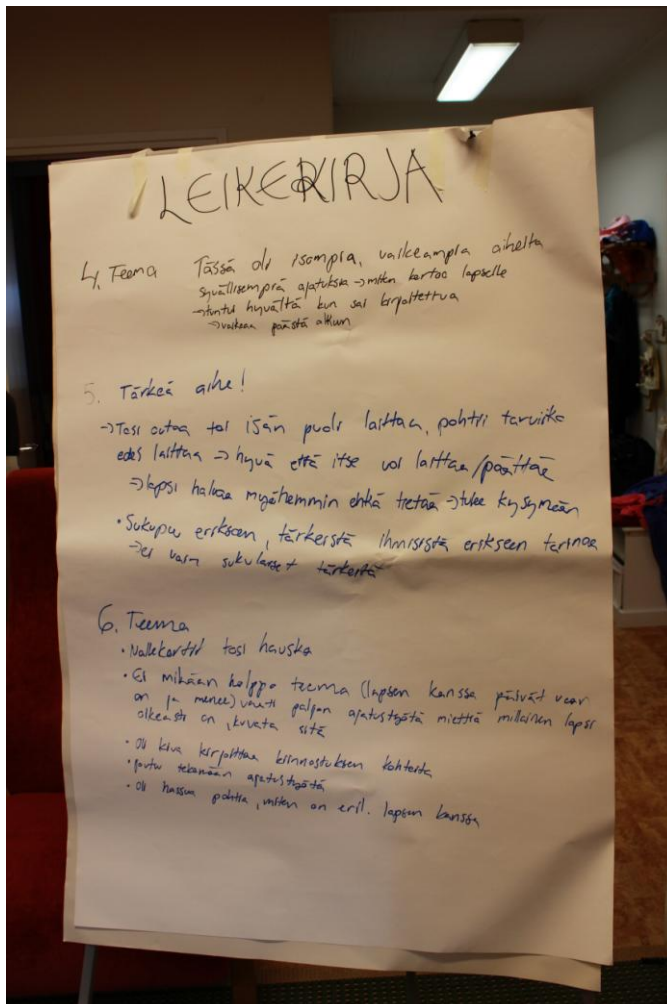 LEIKEKIRJA
4. Teema Tässä oli isompia, vaikeampia aiheita
syvällisempiä ajatuksia → miten kertoa lapselle
→ tuntui hyvältä kun sai kirjoitettua
→ vaikeaa päästä alkuun
5. Tärkeä aihe!
→ Tosi outoa toi isän puoli laittaa, pohtii tarviiko
edes laittaa → hyvä että itse voi laittaa/päättää
→ lapsi haluaa myöhemmin ehkä tietää → tulee kysymään
• Sukupuu erikseen, tärkeistä ihmisistä erikseen tarinaa
→ ei vain sukulaiset tärkeitä
6. Teema
• Nallekortit tosi hauska
• Ei mikään helppo teema (lapsen kanssa päivät vaan
on ja menee) vaati paljon ajatustyötä miettiä millainen lapsi
oikeasti on, kuvata sitä
• Oli kiva kirjoittaa kiinnostuksen kohteita
• joutui tekemään ajatustyötä
• Oli hassua pohtia, miten on eril. lapsen kanssa